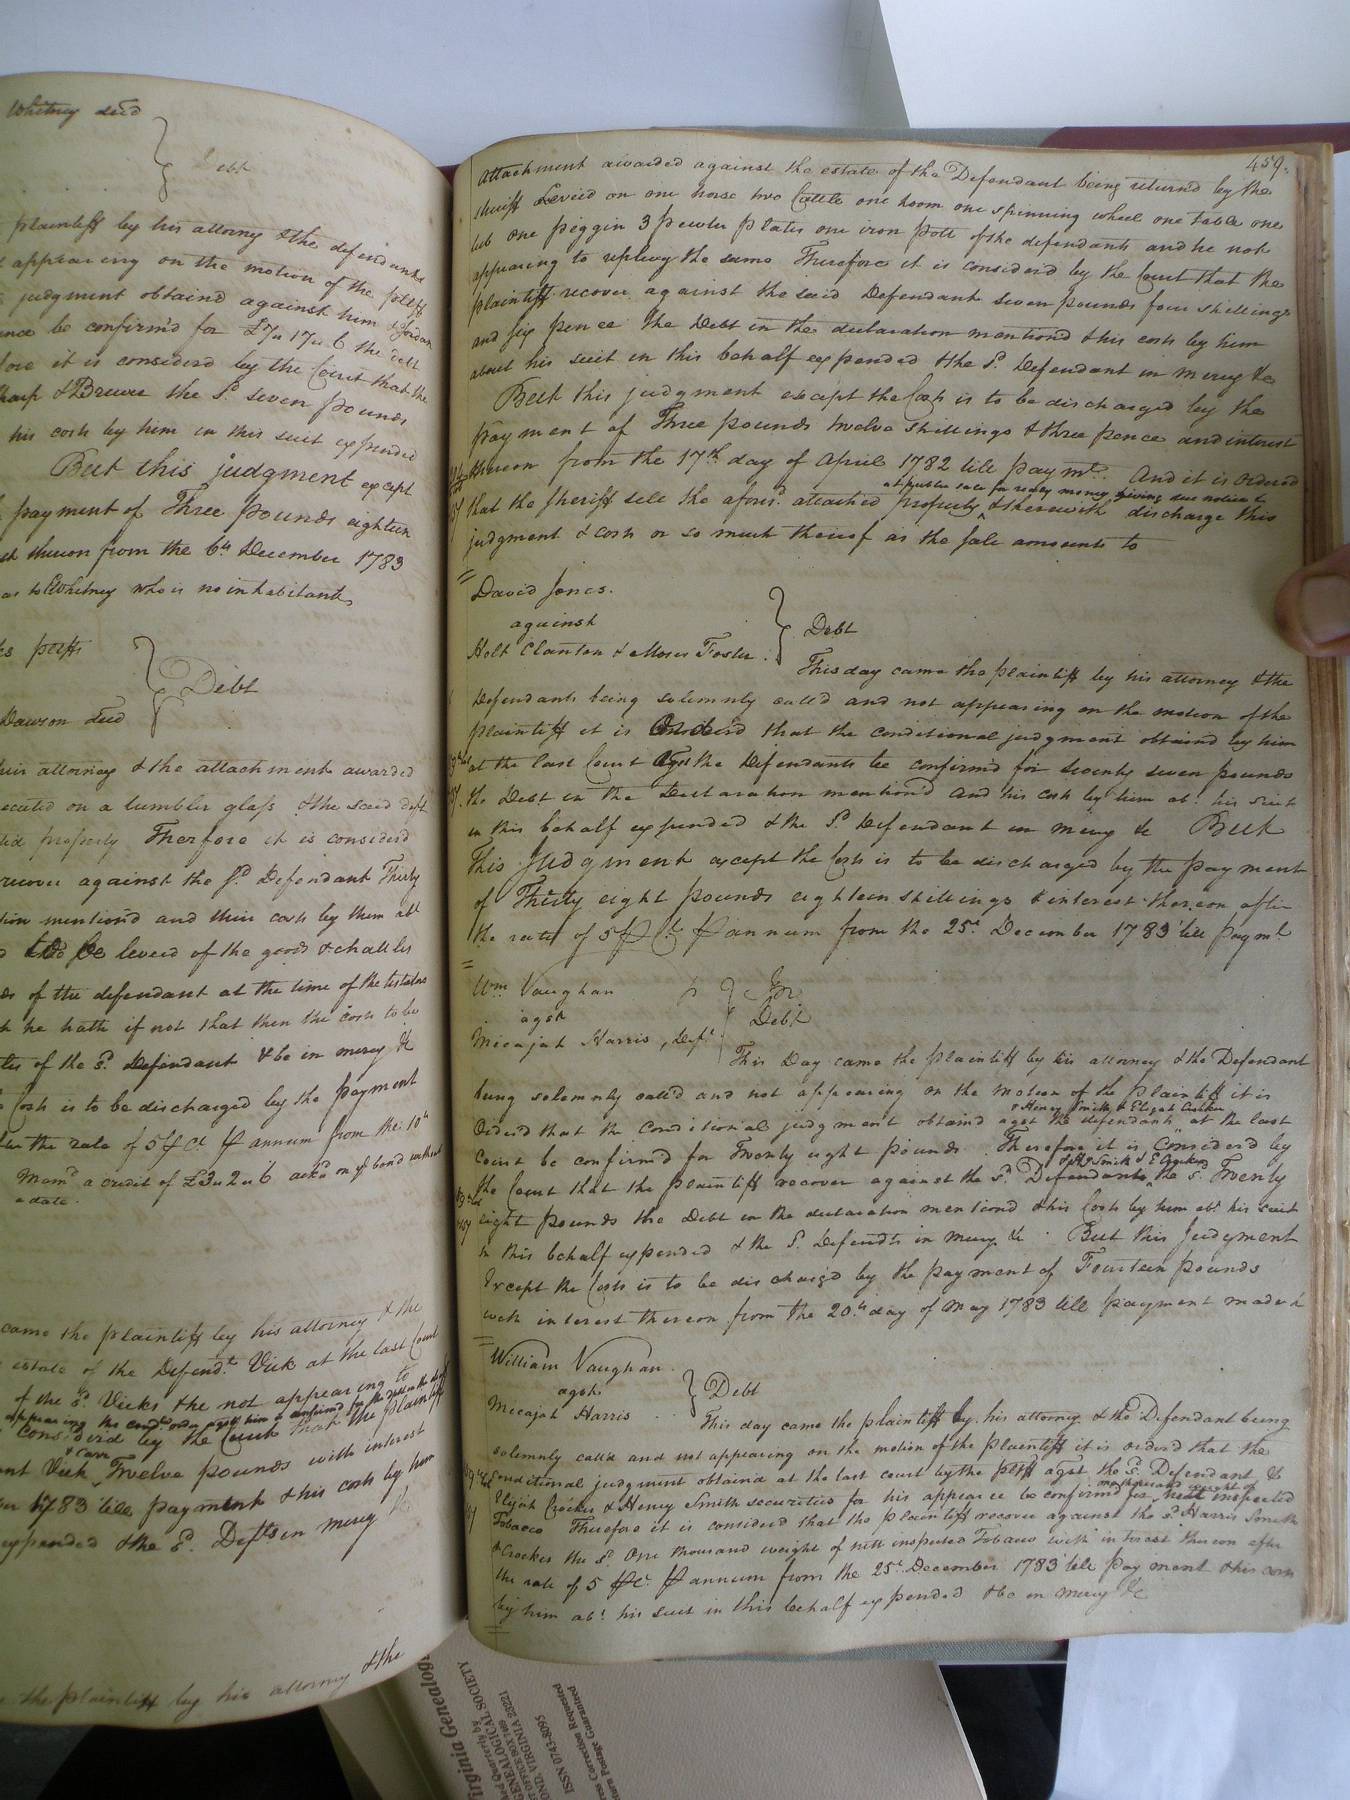 Whitney decd
Debt
plaintiff by his attorny & the defendants
appearing on the motion of the pltff
judgment obtaind against him & Jordan
be confirm'd for £7,,17,,6 the debt
it is considerd by the Court that the
& Brewer the sd. seven pounds
his costs by him in this suit expended
But this judgment except
payment of Three pounds eighteen
thereon from the 6th December 1783
as to Whitney who is no inhabitant
pltffs
Debt
Dawson decd
his attorney & the attachment awarded
on a tumbler glass & the said deft
property Therefore it is considerd
recover against the sd. Defendant Thirty
mention'd and their costs by them abt
be levied of the goods & chattles
of the defendant at the time of the testators
he hath if not that then the costs to be
of the sd. Defendant & be in mercy &c
Costs is to be discharged by the payment
the rate of 5 ⅌ Ct. ⅌ annum from the 10th
Memd. a credit of £3,,2,,6 ackd on ye bond without
a date.
came the plaintiff by his attorney & the
estate of the Defendt. Vick at the last Court
of the sd. Vicks & he not appearing to
appearing the
considerd by the Court that the plaintiff
& Carr
Vick Twelve pounds with interest
1783 till payment & his costs by him
expended & the sd. Defts in mercy &c
the plaintiff by his attorney & the
459.
Attachment awarded against the estate of the Defendant being returnd by the
sheriff Levied on one horse two Cattle one loom one spinning wheel one table one
tub one piggin 3 pewter plates one iron pott of the defendants and he not
appearing to replevy the same Therefore it is considerd by the Court that the
plaintiff recover against the said Defendant seven pounds four shillings
and six pence the Debt in the declaration mentiond & his costs by him
about his suit in this behalf expended & the sd. Defendant in mercy &c
But this judgment except the Costs is to be discharged by the
payment of Three pounds twelve shillings & three pence and interest
thereon from the 17th day of April 1782 till paymt. And it is Orderd
at publick sale for ready money giving due notice &
that the sheriff sell the aforesd. attached property & therewith discharge this
judgment & costs or so much thereof as the sale amounts to
David Jones.
against
Holt Clanton & Moses Foster.
Debt
This day came the plaintiff by his attorney & the
Defendants being solemnly call'd and not appearing on the motion of the
plaintiff it is Orderd that the conditional judgment obtaind by him
at the last Court agst the Defendants be confirm'd for seventy seven pounds
the Debt in the Declaration mention'd and his costs by him abt. his suit
in this behalf expended & the sd. Defendant in mercy &c But
This Judgment except the Costs is to be discharged by the payment
of Thirty eight pounds eighteen shillings & interest thereon after
the rate of 5 ⅌ Ct. ⅌ annum from the 25th December 1783 till paymt.
Wm Vaughan
agst
Micajah Harris, Deft
In
Debt
This Day came the plaintiff by his attorney & the Defendant
being solemnly call'd and not appearing on the motion of the plaintiff it is
& Henry Smith & Elijah Crocker
Orderd that the Conditional judgment obtaind agst the defendants at the last
Court be confirm'd for Twenty eight pounds. Therefore it is Considerd by
& Hy Smith & E Crocker
the Court that the plaintiff recover against the sd. Defendants the sd. Twenty
eight pounds the Debt in the declaration mentiond & his Costs by him abt. his suit
in this behalf expended & the sd. Defendts in mercy &c. But this Judgment
Except the Costs is to be discharg'd by the payment of Fourteen pounds
with interest thereon from the 20th day of May 1783 till payment made &
William Vaughan
agst.
Micajah Harris
Debt
This day came the plaintiff by his attorney & the Defendant being
solemnly calld and not appearing on the motion of the plaintiff it is orderd that the
Conditional judgment obtaind at the last court by the pltff agst the sd. Defendant &
one thousand weight of
Elijah Crocker & Henry Smith securities for his appearce be confirmd for nett inspected
Tobacco Therefore it is considerd that the plaintiff recover against the sd. Harris Smith
& Crocker the sd. One thousand weight of nett inspected Tobacco with interest thereon after
the rate of 5 ⅌ Ct. ⅌ annum from the 25th December 1783 till payment & his costs
by him abt. his suit in this behalf expended & be in mercy &c
Virginia Genealogi
Quarterly by
GENEALOGICAL SOCIETY
OFFICE BOX 7469
OND, VIRGINIA 23221
ISSN 0743-8095
ress Correction Requested
turn Postage Guaranteed